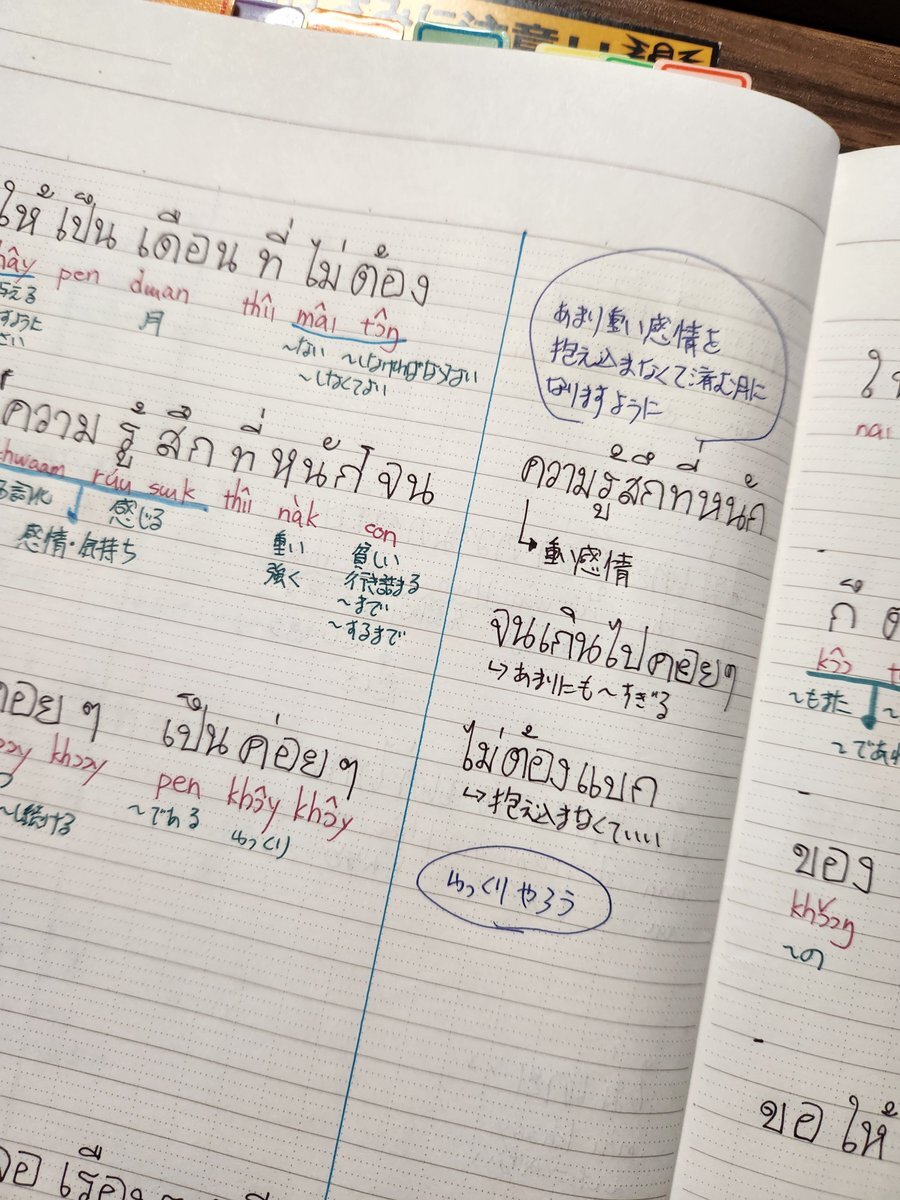 ให้ เป็น เดือน ที่ ไม่ ต้อง
hây pen dɯan thîi mâi tɔ̂ŋ
与える
月
~ない ~しなければならない
~しなくてよい
ความ รู้ สึก ที่ หนัก จน
khwaam rúu sɯ̀k thîi nàk con
感じる
重い
貧しい
感情・気持ち
強く
行き詰まる
~まで
~するまで
คอย ๆ เป็น ค่อย ๆ
khɔɔy pen khɔ̂y khɔ̂y
~し続ける
~である
ゆっくり
เรื่อง
あまり重い感情を
抱え込まなくて済む月に
なりますように
ความรู้สึกที่หนัก
↳重い感情
จนเกินไปคอยๆ
↳あまりにも~すぎる
ไม่ต้องแบก
↳抱え込まなくていい
ゆっくりやろう
nai
ก็
kɔ̂ɔ
~もまた
ของ
khɔ̌ɔŋ
~の
ขอ ให้